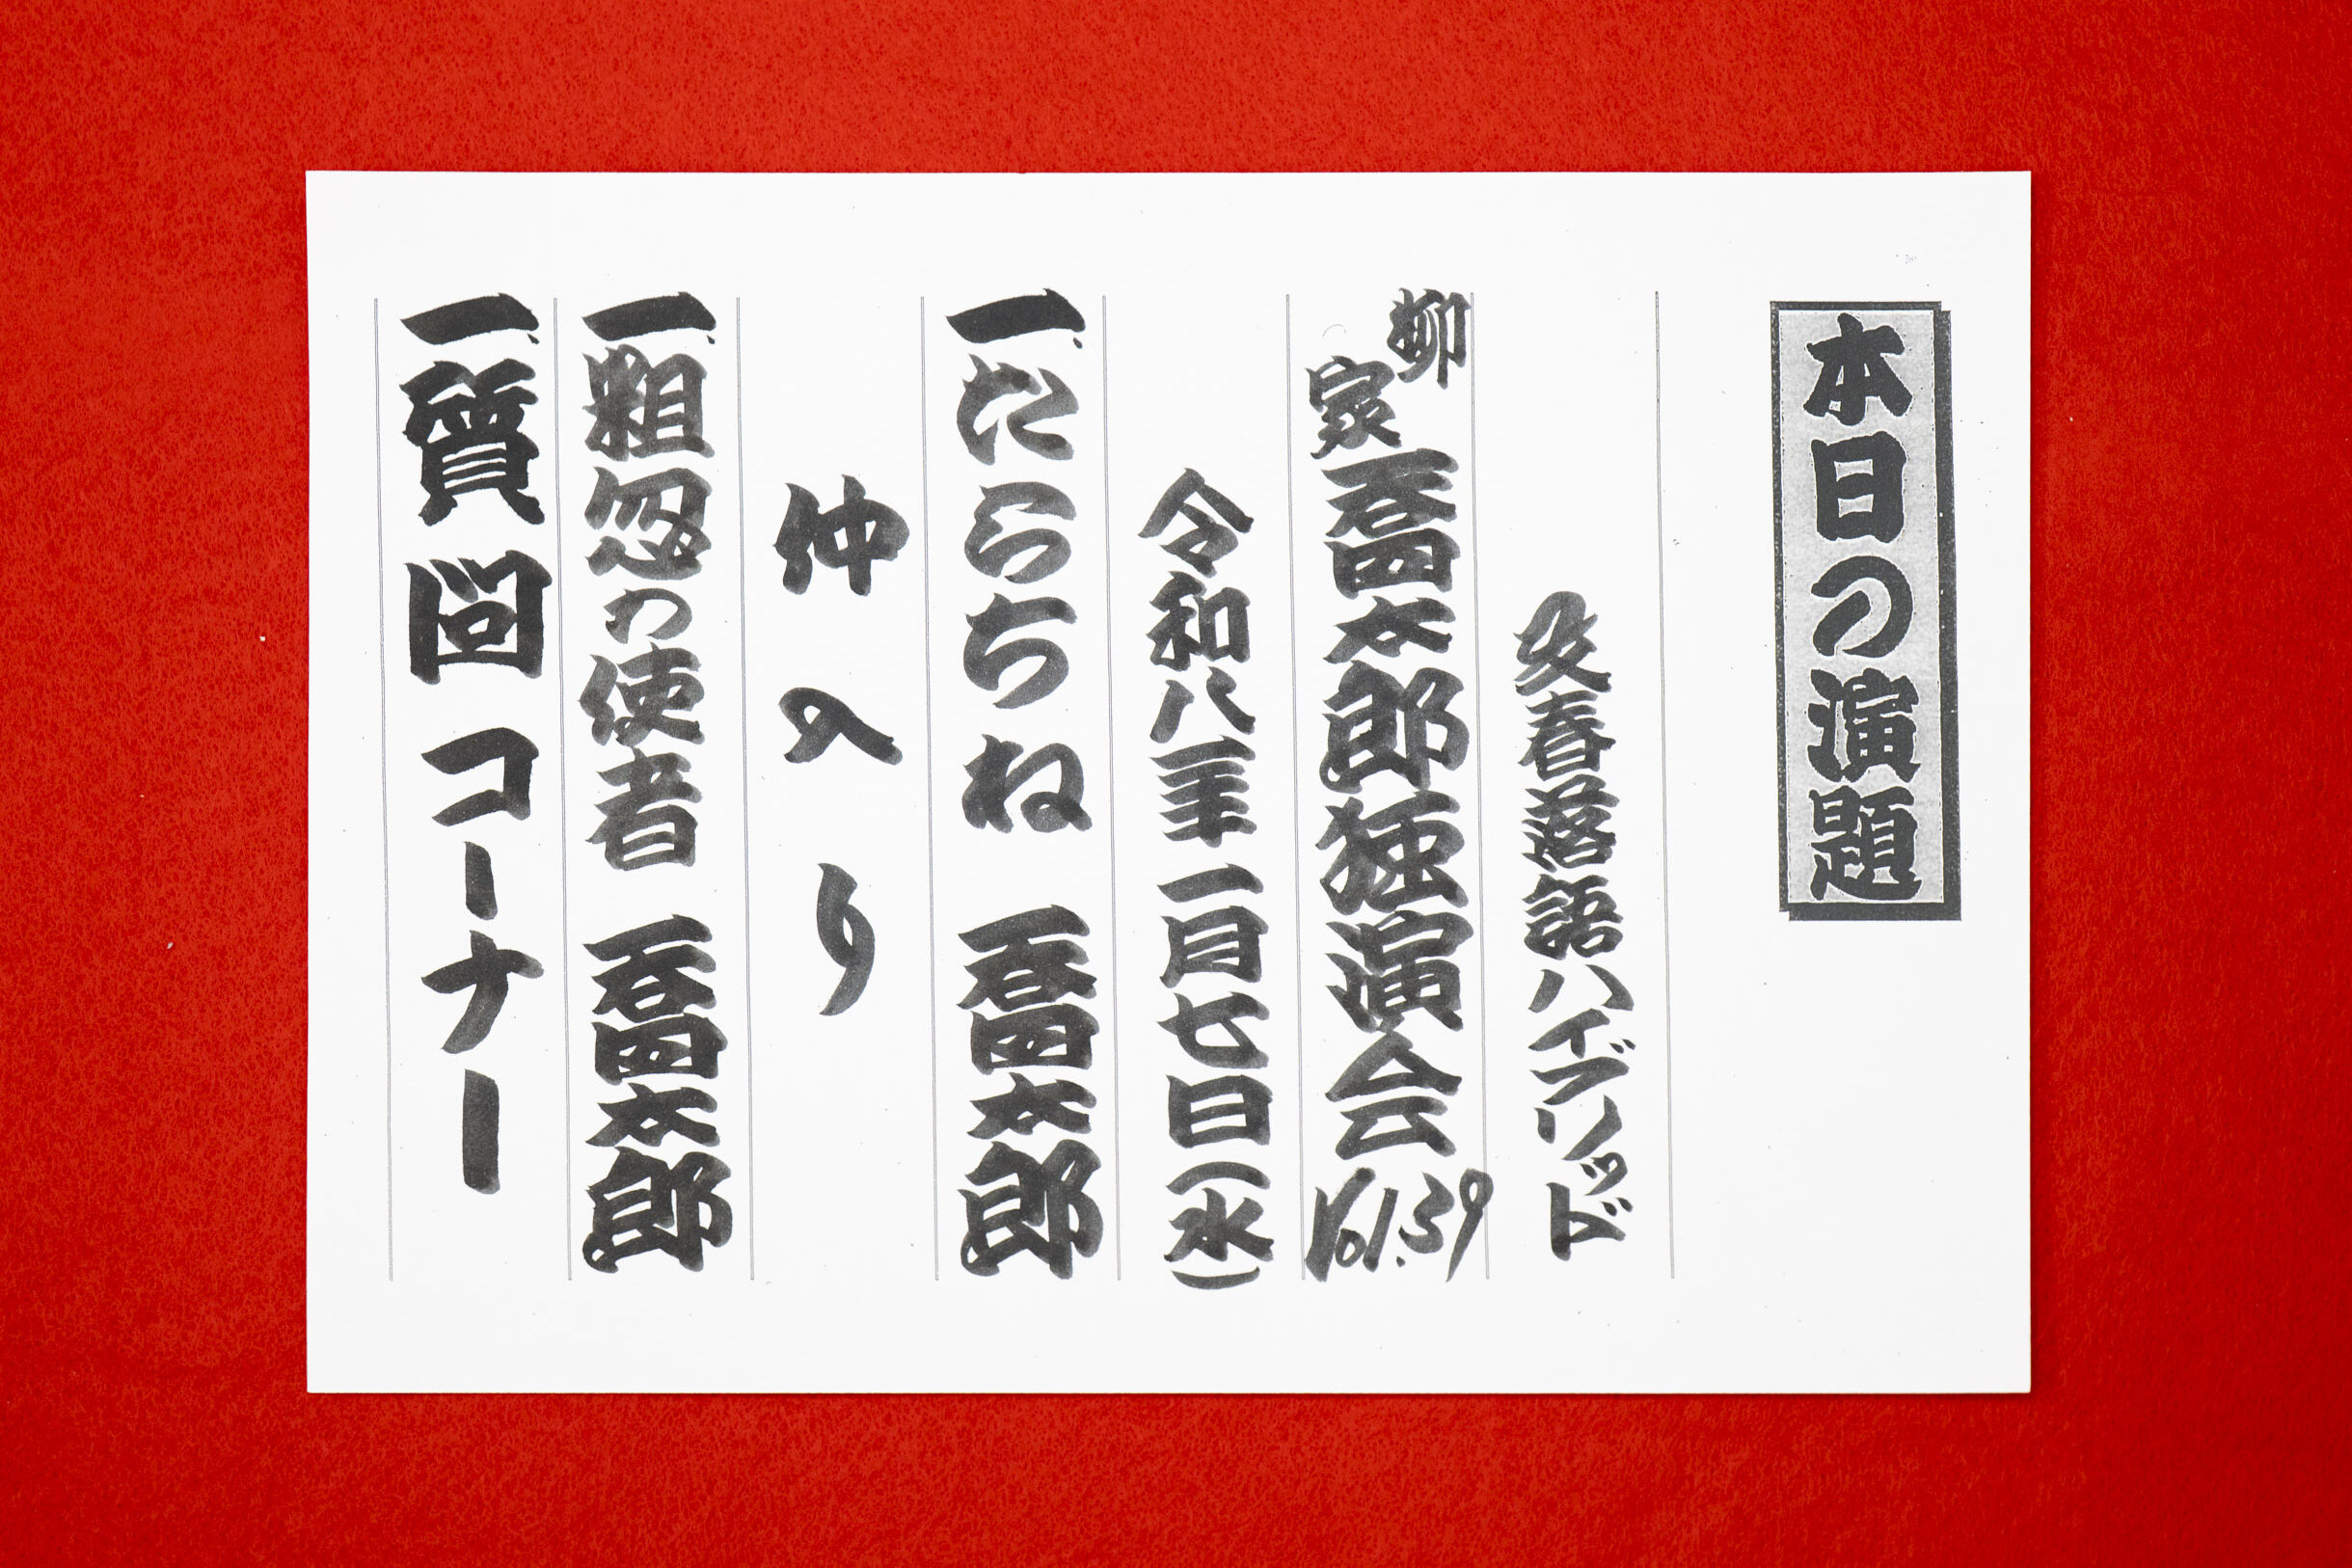 本日の演題
文春落語ハイブリッド
柳家𠮷四太郎独演会 Vol.39
令和八年一月七日(水)
一、たらちね 𠮷四太郎
仲入り
一、粗忽の使者 𠮷四太郎
一、質問コーナー